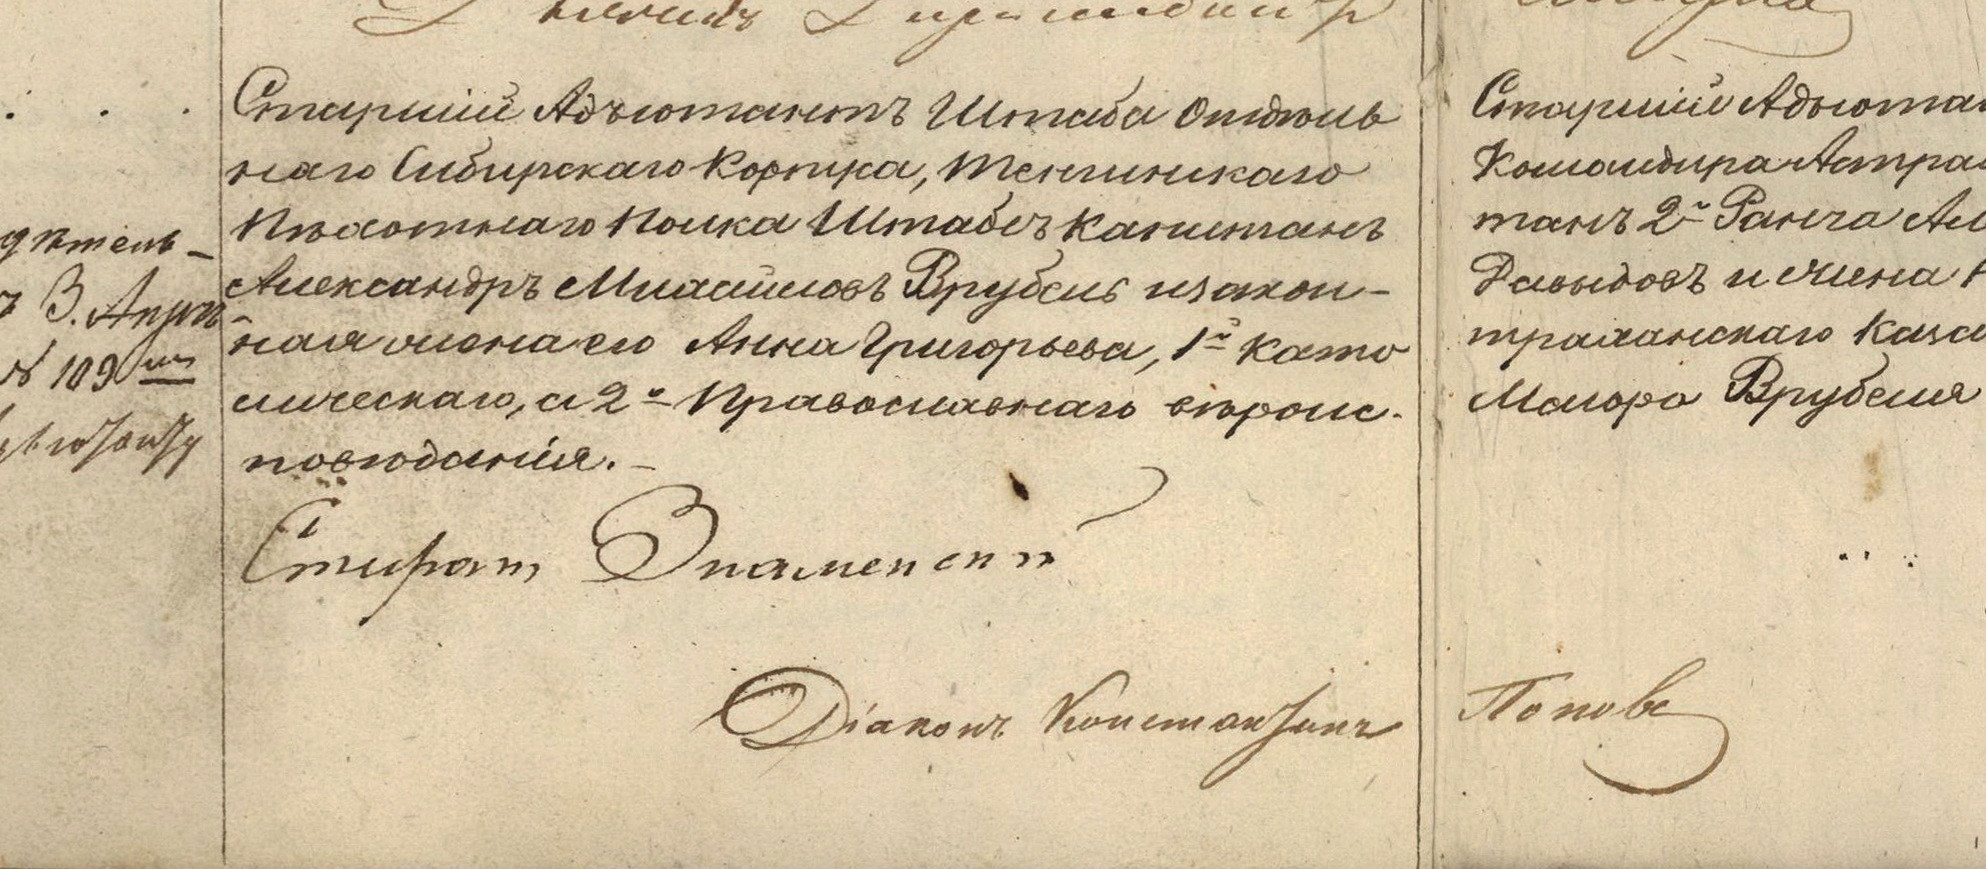 Старшій Адъютантъ Штаба Отдѣль
наго Сибирскаго Корпуса, Тенгинскаго
Пѣхотнаго Полка Штабсъ Капитанъ
Александръ Михайловъ Врубель и закон-
ная жена его Анна Григорьева, 1й като
лическаго, а 2я Православнаго вѣроис-
повѣданія.
Знаменскій
Діаконъ Константинъ
дѣтель-
3. Апрѣ
№ 109
Старшій Адъюта
Командира Астрах
танъ 2го Ранга Ал
Давыдовъ и жена
траханскаго Каза
Маіора Врубеля
Поповъ